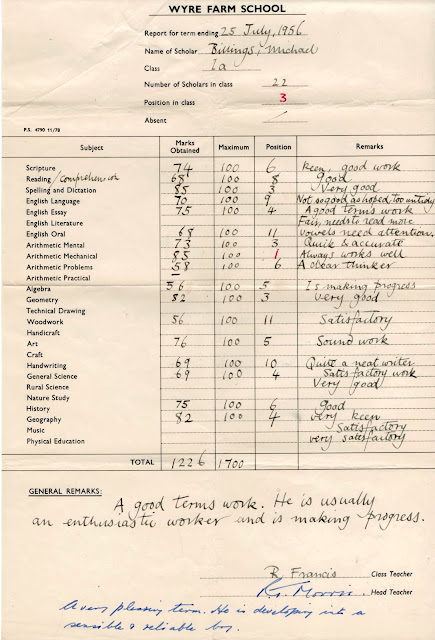 WYRE FARM SCHOOL
Report for term ending 25 July, 1956
Name of Scholar Billings, Michael
Class 1a
Number of Scholars in class 22
Position in class 3
Absent /
P.S. 4790 11/78
Subject Marks Obtained Maximum Position Remarks
Scripture 74 100 6 keen, good work
Reading /Comprehension 68 100 8 good
Spelling and Dictation 85 100 3 Very good
English Language 70 100 9 Not so good as hoped too untidy
English Essay 75 100 4 A good terms work
English Literature Fair, needs to read more
English Oral 68 100 11 Vowels need attention.
Arithmetic Mental 73 100 3 Quik & accurate
Arithmetic Mechanical 85 100 1 Always works well
Arithmetic Problems 58 100 6 A clear thinker
Arithmetic Practical
Algebra 56 100 5 Is making progress
Geometry 82 100 3 very good
Technical Drawing
Woodwork 56 100 11 Satisfactory
Handicraft
Art 76 100 5 Sound work
Craft
Handwriting 69 100 10 Quite a neat writer
General Science 69 100 4 Satisfactory work
Rural Science Very good
Nature Study
History 75 100 6 good
Geography 82 100 4 very keen
Music Satisfactory
Physical Education very satisfactory
TOTAL 1226 1700
GENERAL REMARKS:
A good terms work. He is usually
an enthusiastic worker and is making progress.
R. Francis Class Teacher
Morris Head Teacher
A very pleasing term. He is developing into a
sensible & reliable boy.